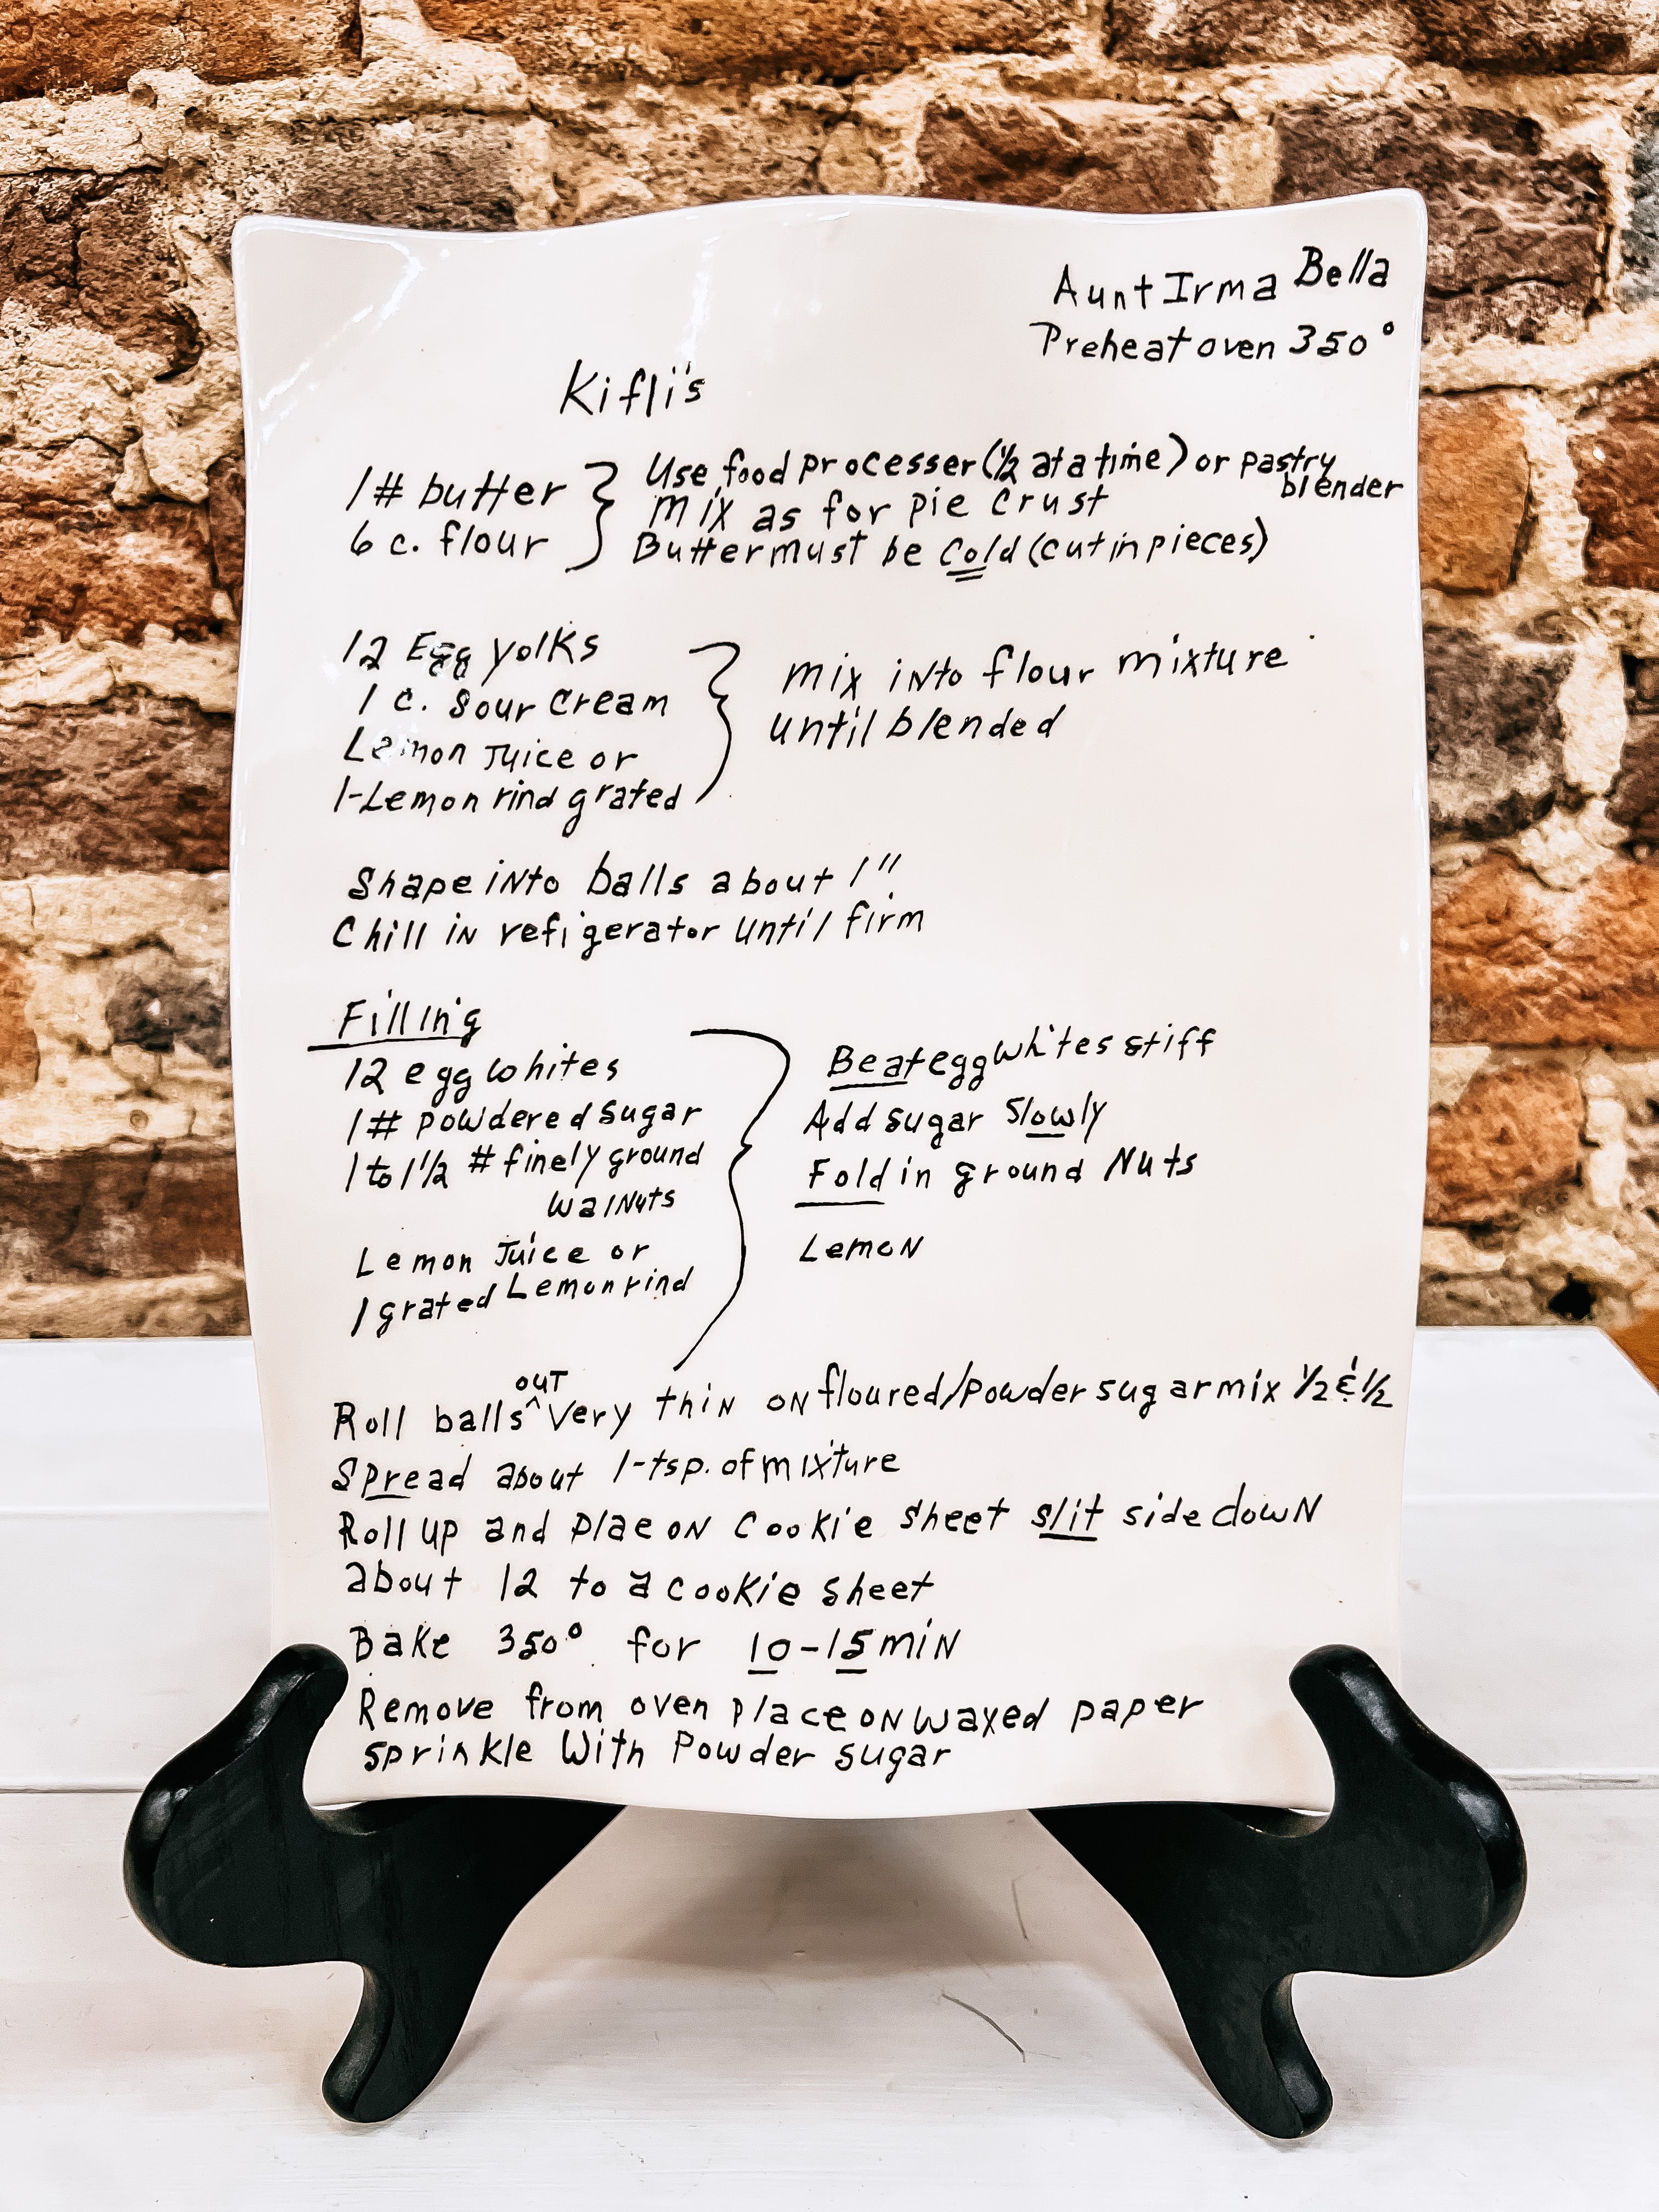 Aunt Irma Bella
Preheat oven 350°
Kifli's
1# butter
6 c. flour
Use food processer (1/2 at a time) or pastry blender
mix as for pie crust
Butter must be cold (cut in pieces)
12 Egg yolks
1 c. sour cream
Lemon Juice or
1-Lemon rind grated
mix into flour mixture
until blended
Shape into balls about 1"
Chill in refigerator until firm
Filling
12 egg whites
1# powdered sugar
1 to 1 1/2 # finely ground
walnuts
Lemon Juice or
1 grated Lemon rind
Beat egg whites stiff
Add sugar slowly
Fold in ground Nuts
Lemon
Roll balls ^out very thin on floured/powder sugar mix 1/2 & 1/2
Spread about 1-tsp. of mixture
Roll up and plae on cookie sheet slit side down
about 12 to a cookie sheet
Bake 350° for 10-15 min
Remove from oven place on waxed paper
sprinkle with Powder sugar